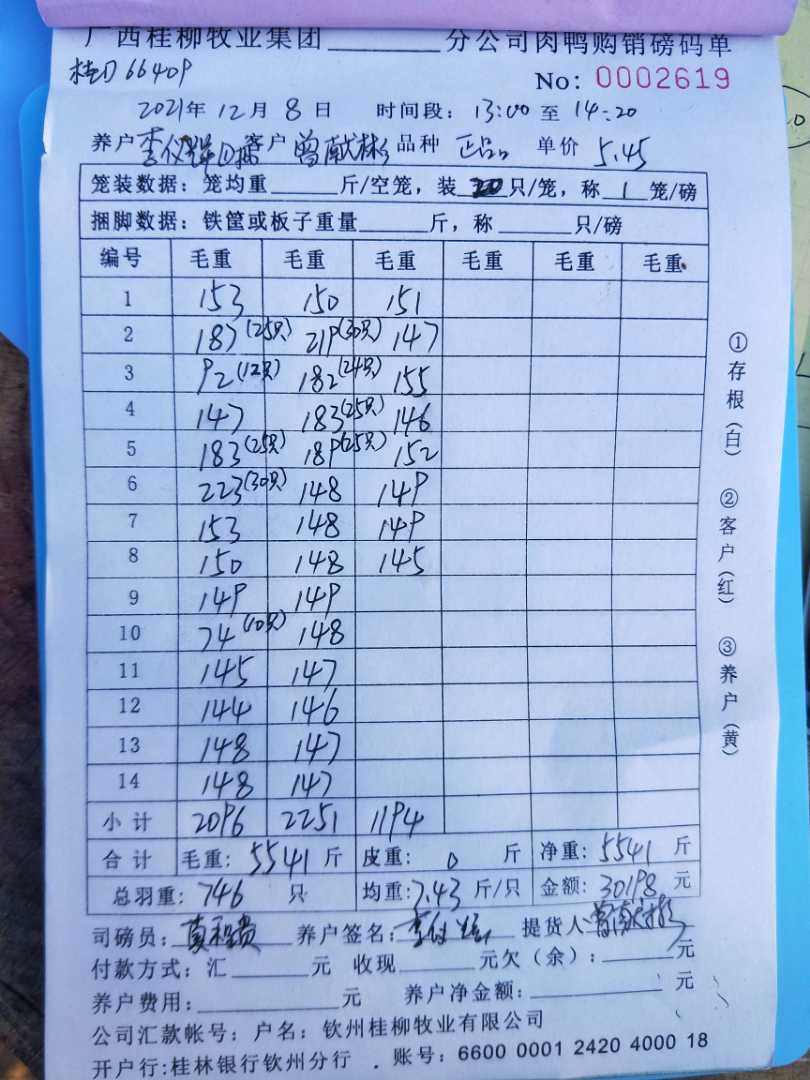 广西桂柳牧业集团________分公司肉鸭购销磅码单
桂D 66409
No: 0002619
2021年 12月 8日 时间段: 13:00 至 14:20
养户 客户 曾献彬 品种 正品 单价 5.45
笼装数据: 笼均重______斤/空笼, 装 20 只/笼, 称 1 笼/磅
捆脚数据: 铁筐或板子重量______斤, 称______只/磅
编号 毛重 毛重 毛重 毛重 毛重 毛重
1 153 150 151
2 187(25只) 219(30只) 147
3 92(12只) 182(24只) 155
4 147 183(25只) 146
5 183(25只) 189(25只) 152
6 223(30只) 148 149
7 153 148 149
8 150 148 145
9 149 149
10 74(10只) 148
11 145 147
12 144 146
13 148 147
14 148 147
小计 2096 2251 1194
合计 毛重: 5541 斤 皮重: 0 斤 净重: 5541 斤
总羽重: 746 只 均重: 7.43 斤/只 金额: 30198 元
司磅员: 养户签名: 提货人 曾献彬
付款方式: 汇______元 收现______元欠(余): ______元
养户费用: ______元 养户净金额: ______元
公司汇款帐号: 户名: 钦州桂柳牧业有限公司
开户行: 桂林银行钦州分行 . 账号: 6600 0001 2420 4000 18
①存根(白) ②客户(红) ③养户(黄)